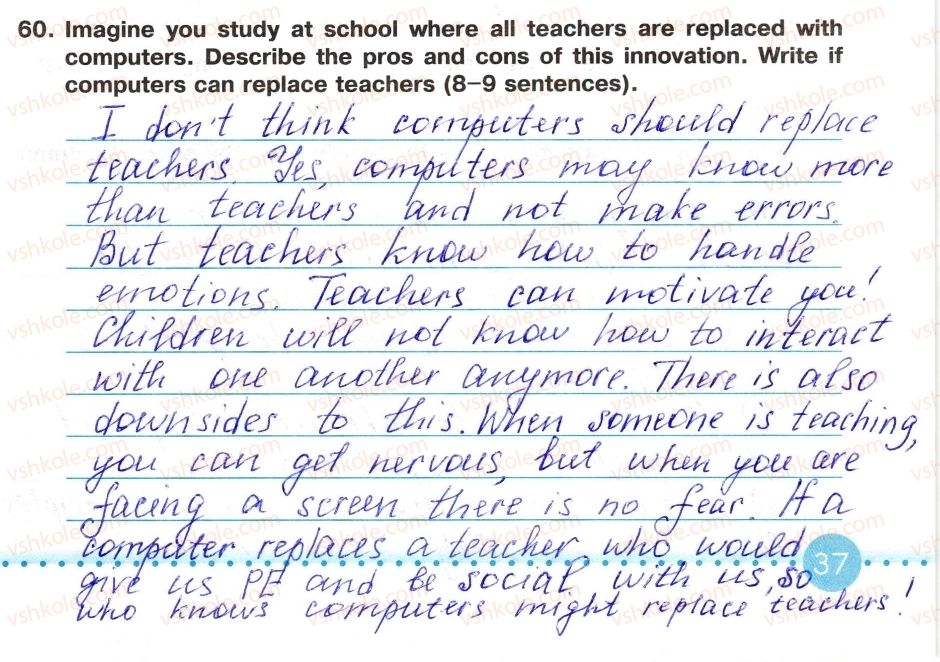 60. Imagine you study at school where all teachers are replaced with
computers. Describe the pros and cons of this innovation. Write if
computers can replace teachers (8–9 sentences).
I don't think computers should replace
teachers. Yes, computers may know more
than teachers and not make errors.
But teachers know how to handle
emotions. Teachers can motivate you!
Children will not know how to interact
with one another anymore. There is also
downsides to this. When someone is teaching,
you can get nervous, but when you are
facing a screen there is no fear. If a
computer replaces a teacher, who would
37
give us PE and be social with us, so
who knows computers might replace teachers!
vshkole.com